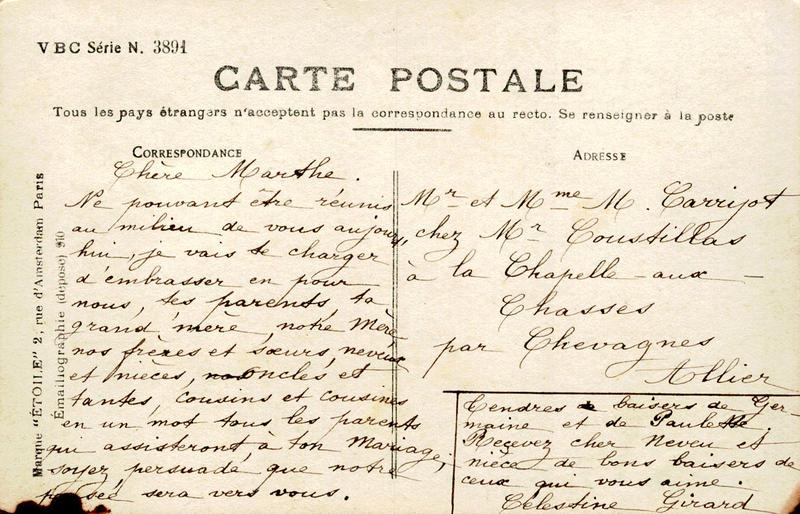 VBC Série N. 3891
CARTE POSTALE
Tous les pays étrangers n'acceptent pas la correspondance au recto. Se renseigner à la poste
CORRESPONDANCE
Chère Marthe.
Ne pouvant être réunis
au milieu de vous aujourd'
hui, je vais te charger
d'embrasser en pour
nous, tes parents, ta
grand'mère, notre Mère
nos frères et sœurs, neveux
et nièces, oncles et
tantes, cousins et cousines
en un mot tous les parents
qui assisteront à ton Mariage,
soyez persuadé que notre
pensée sera vers vous.
ADRESSE
Mr et Mme M. Carrijot
chez Mr Coustillas
à la Chapelle-aux-
Chasses
par Chevagnes
Allier
Tendres baisers de Ger-
maine et de Paulette.
Recevez cher Neveu et
nièce de bons baisers de
ceux qui vous aime.
Célestine Girard
Marque "ÉTOILE" 2, rue d'Amsterdam Paris
Émailliographie (déposé)